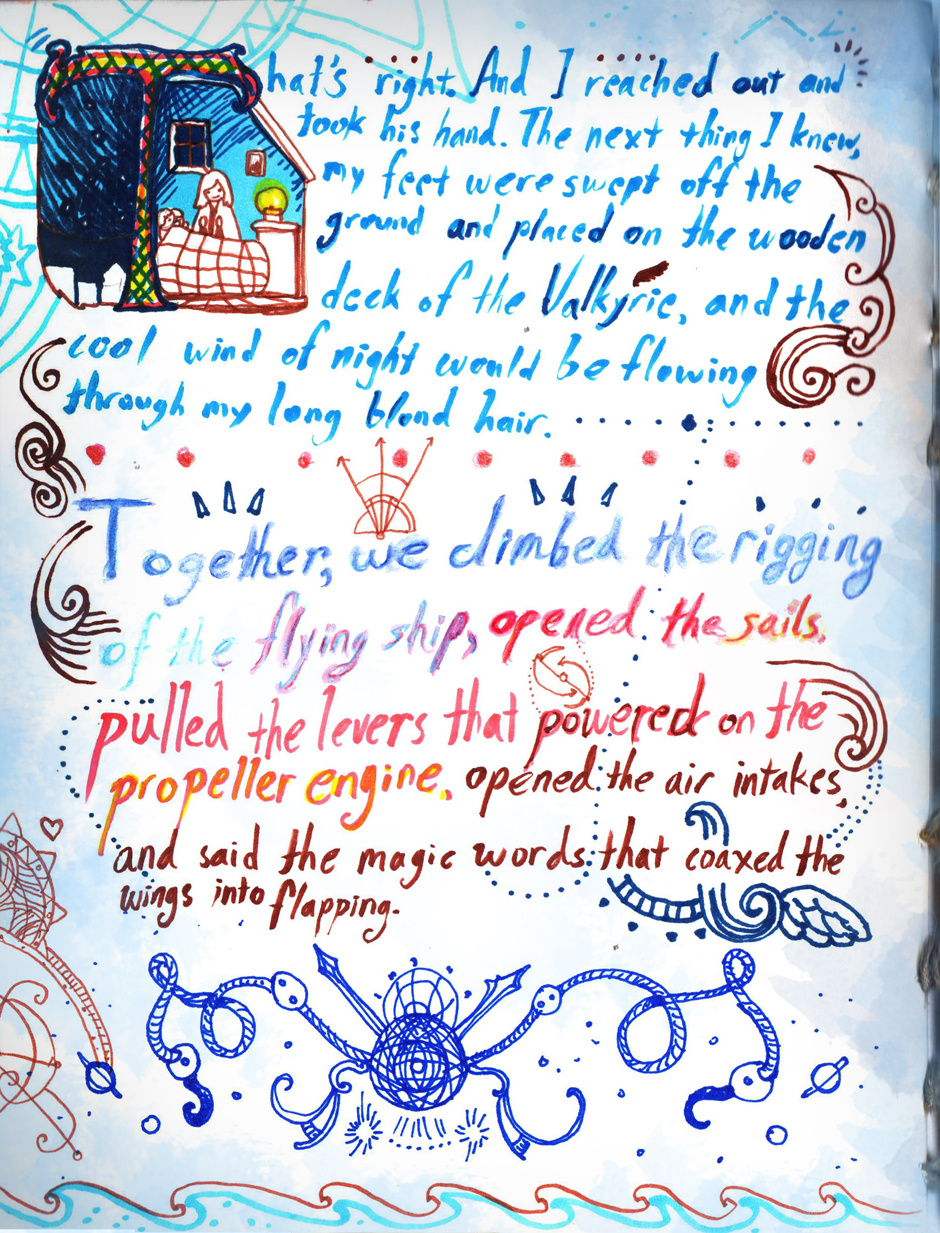 That's right. And I reached out and
took his hand. The next thing I knew,
my feet were swept off the
ground and placed on the wooden
deck of the Valkyrie, and the
cool wind of night would be flowing
through my long blond hair.
Together, we climbed the rigging
of the flying ship, opened the sails,
pulled the levers that powered on the
propeller engine, opened the air intakes,
and said the magic words that coaxed the
wings into flapping.